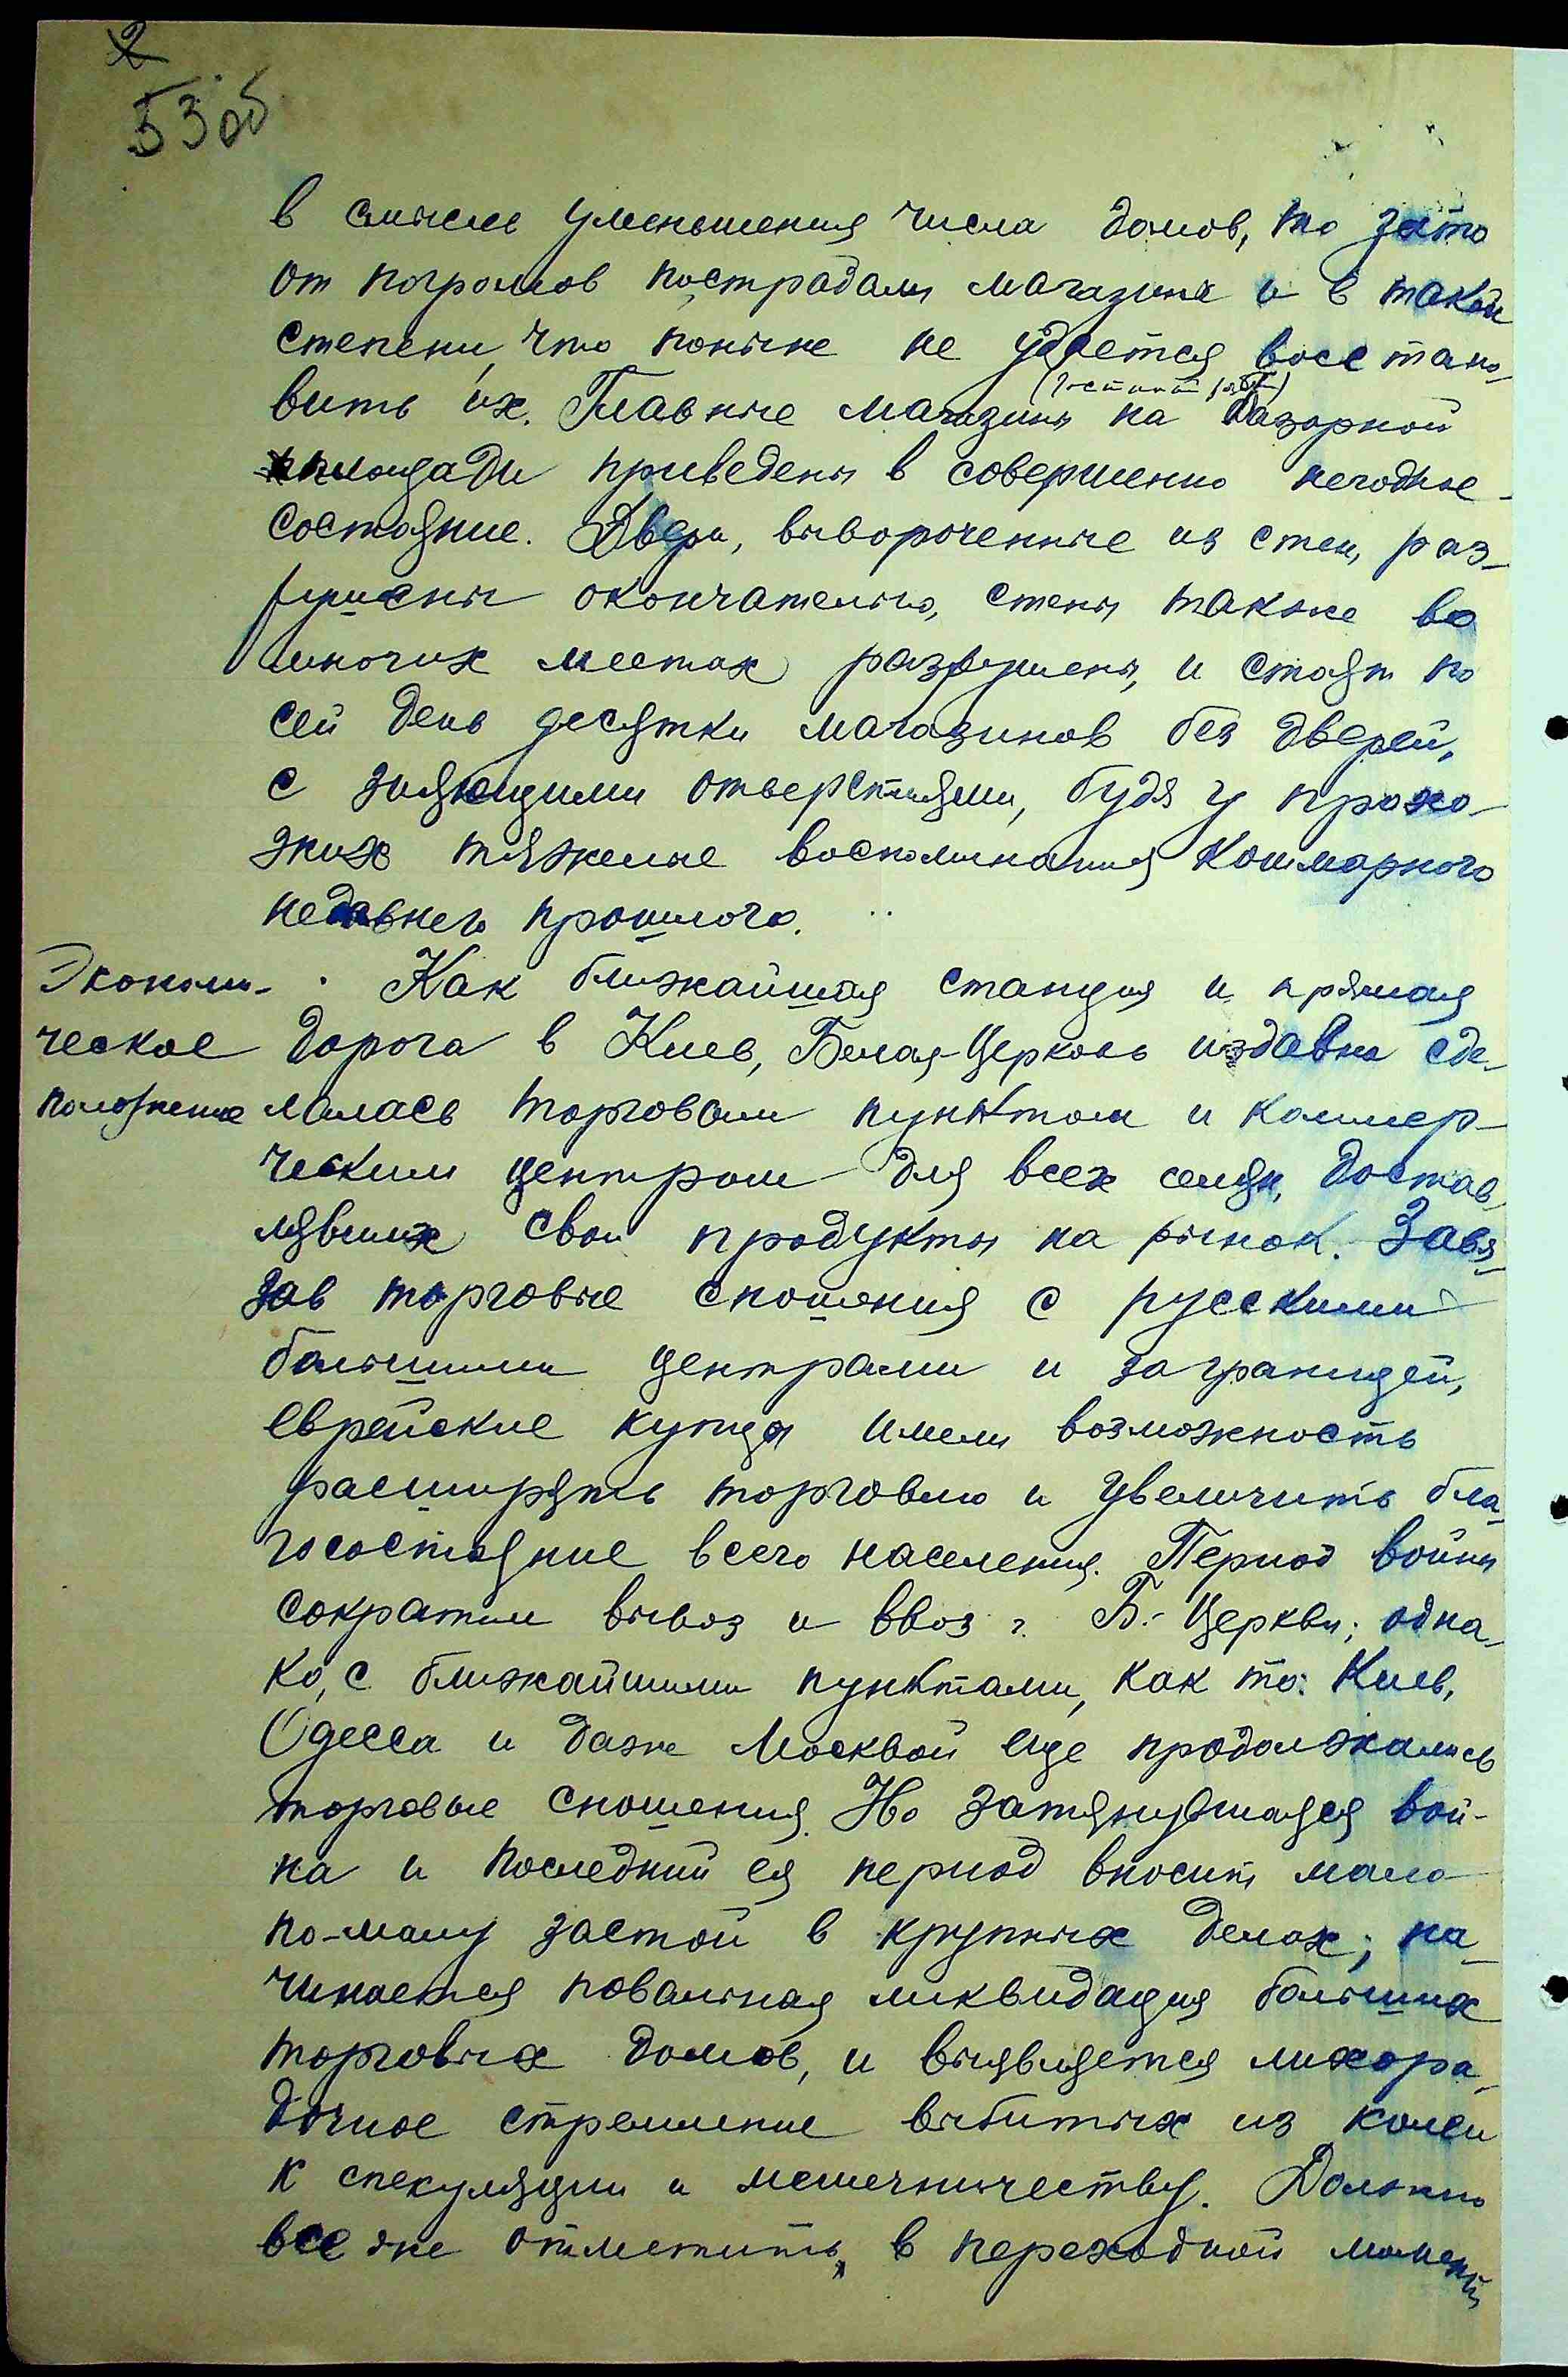 2
53об
в смысле уменьшения числа домов, то зато
от погромов пострадали магазины и в такой
степени, что поныне не удается восстано-
(Гостиный ряд)
вить их. Главные магазины на базарной
площади приведены в совершенно негодное
состояние. Двери, вывороченные из стен, раз-
рушены окончательно, стены также во
многих местах разрушены, и стоят по
сей день десятки магазинов без дверей,
с зияющими отверстиями, будя у прохо-
жих тяжелые воспоминания кошмарного
недавнего прошлого.
Экономи- Как ближайшая станция и прямая
ческое дорога в Киев, Белая-Церковь издавна сде-
положение лалась торговым пунктом и коммер-
ческим центром для всех селян, достав-
лявших свои продукты на рынок. Завя-
зав торговые сношения с русскими
большими центрами и заграницей,
еврейские купцы имели возможность
расширять торговлю и увеличить бла-
госостояние всего населения. Период войны
сократил вывоз и ввоз г. Б.-Церкви; одна-
ко, с ближайшими пунктами, как то: Киев,
Одесса и даже Москвой еще продолжались
торговые сношения. Но затянувшаяся вой-
на и последний ея период вносит мало
по-малу застой в крупных делах; на-
чинается повальная ликвидация больших
торговых домов, и выявляется лихора-
дочное стремление выбитых из колеи
к спекуляции и мешечничеству. Должно
все же отметить, в переходной момент